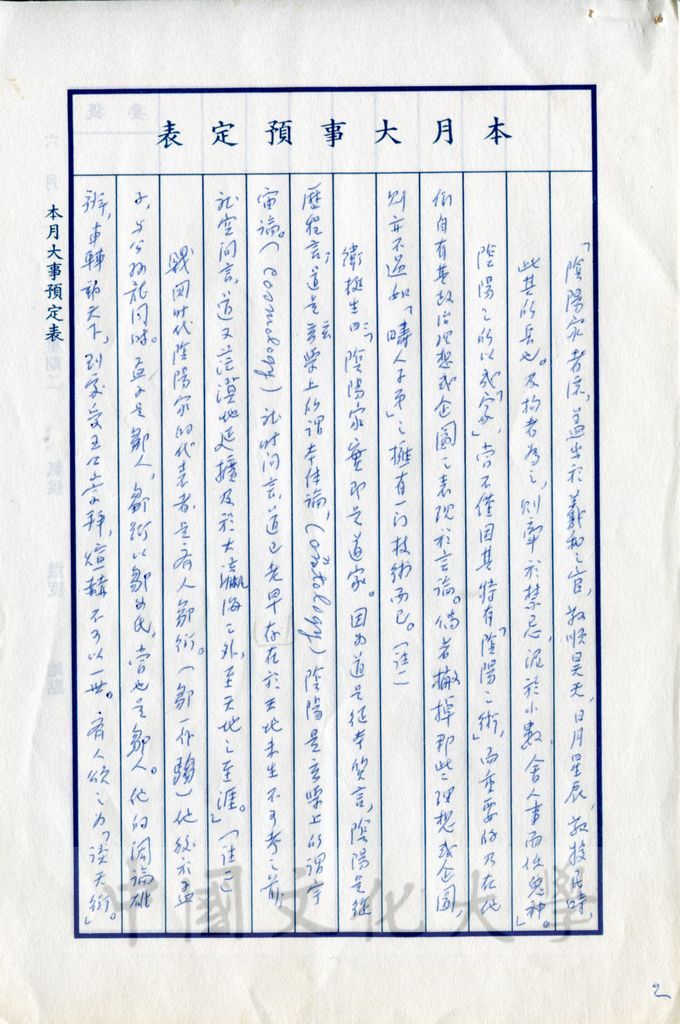 本月大事預定表
本月大事預定表
「陰陽家者流，蓋出於羲和之官，敬順昊天，日月星辰，敬授民時，
此其所長也。及拘者為之，則牽於禁忌，泥於小數，舍人事而任鬼神。」
陰陽之所以成「家」，當不僅因其特有「陰陽之術」，而重要的乃在他
們自有其政治理想或企圖之表現於言論。倘若撇掉那些理想或企圖，
則亦不過如「疇人子弟」之擁有一門技術而已。（註一
衛挺生曰：「陰陽家實即是道家。因為道是從本質言，陰陽是從
歷程言，道是玄學上所謂本体論，(ontology) 陰陽是玄學上所謂宇
宙論。(cosmology) 就时间言，道已老早存在於天地未生不可考之前，
就空间言，道又茫漠地延擴及於大瀛海之外，至天地之至涯。」（註二
戰国时代陰陽家的代表者是齊人鄒衍。（鄒一作騶）他後於孟
子，与公孙龙同時。孟子是鄒人，鄒衍以鄒为氏，當也是鄒人。他的閎論雄
辨，車轉於天下，到處受王公崇拜，煊赫不可以一世。齊人頌之为「談天衍」。
2
中國文化大學